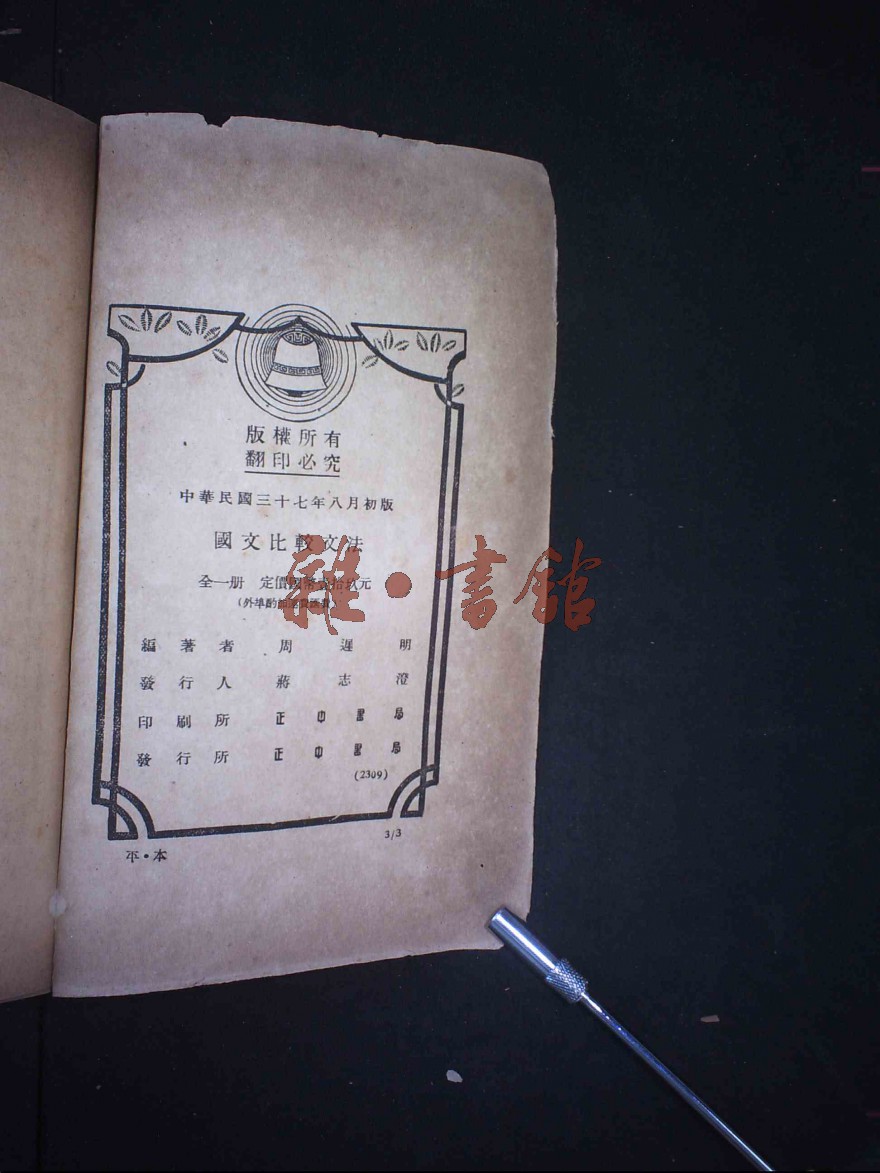 版權所有
翻印必究
中華民國三十七年八月初版
國文比較文法
全一册 定價國幣壹拾玖元
(外埠酌加運費匯費)
編著者 周遲明
發行人 蔣志澄
印刷所 正中書局
發行所 正中書局
(2309)
3/3
平·本
雜·書館